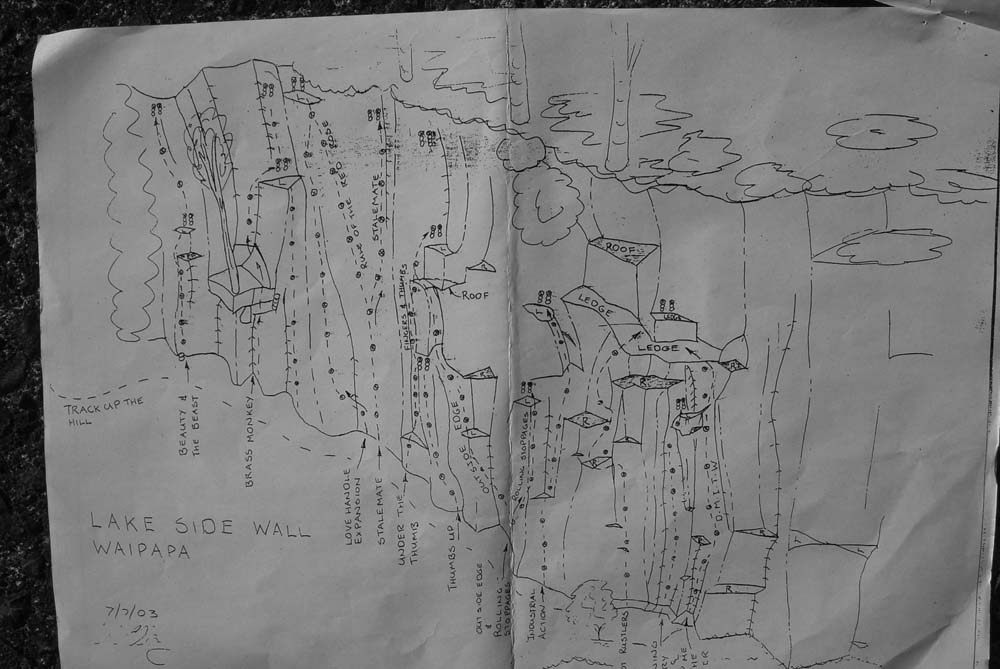 ROOF
LEDGE
LEDGE
LEDGE
ROOF
RULE OF THE RED ROSE
STALEMATE
FINGERS & THUMBS
OUTSIDE EDGE
ROLLING STOPPAGES
D.M.I.T.W
R
R
R
R
R
TRACK UP THE
HILL
BEAUTY &
THE BEAST
BRASS MONKEY
LOVE HANDLE
EXPANSION
STALEMATE
UNDER THE
THUMB
THUMBS UP
OUTSIDE EDGE
&
ROLLING
STOPPAGES
INDUSTRIAL
ACTION
RUSTLERS
LAKE SIDE WALL
WAIPAPA
7/7/03